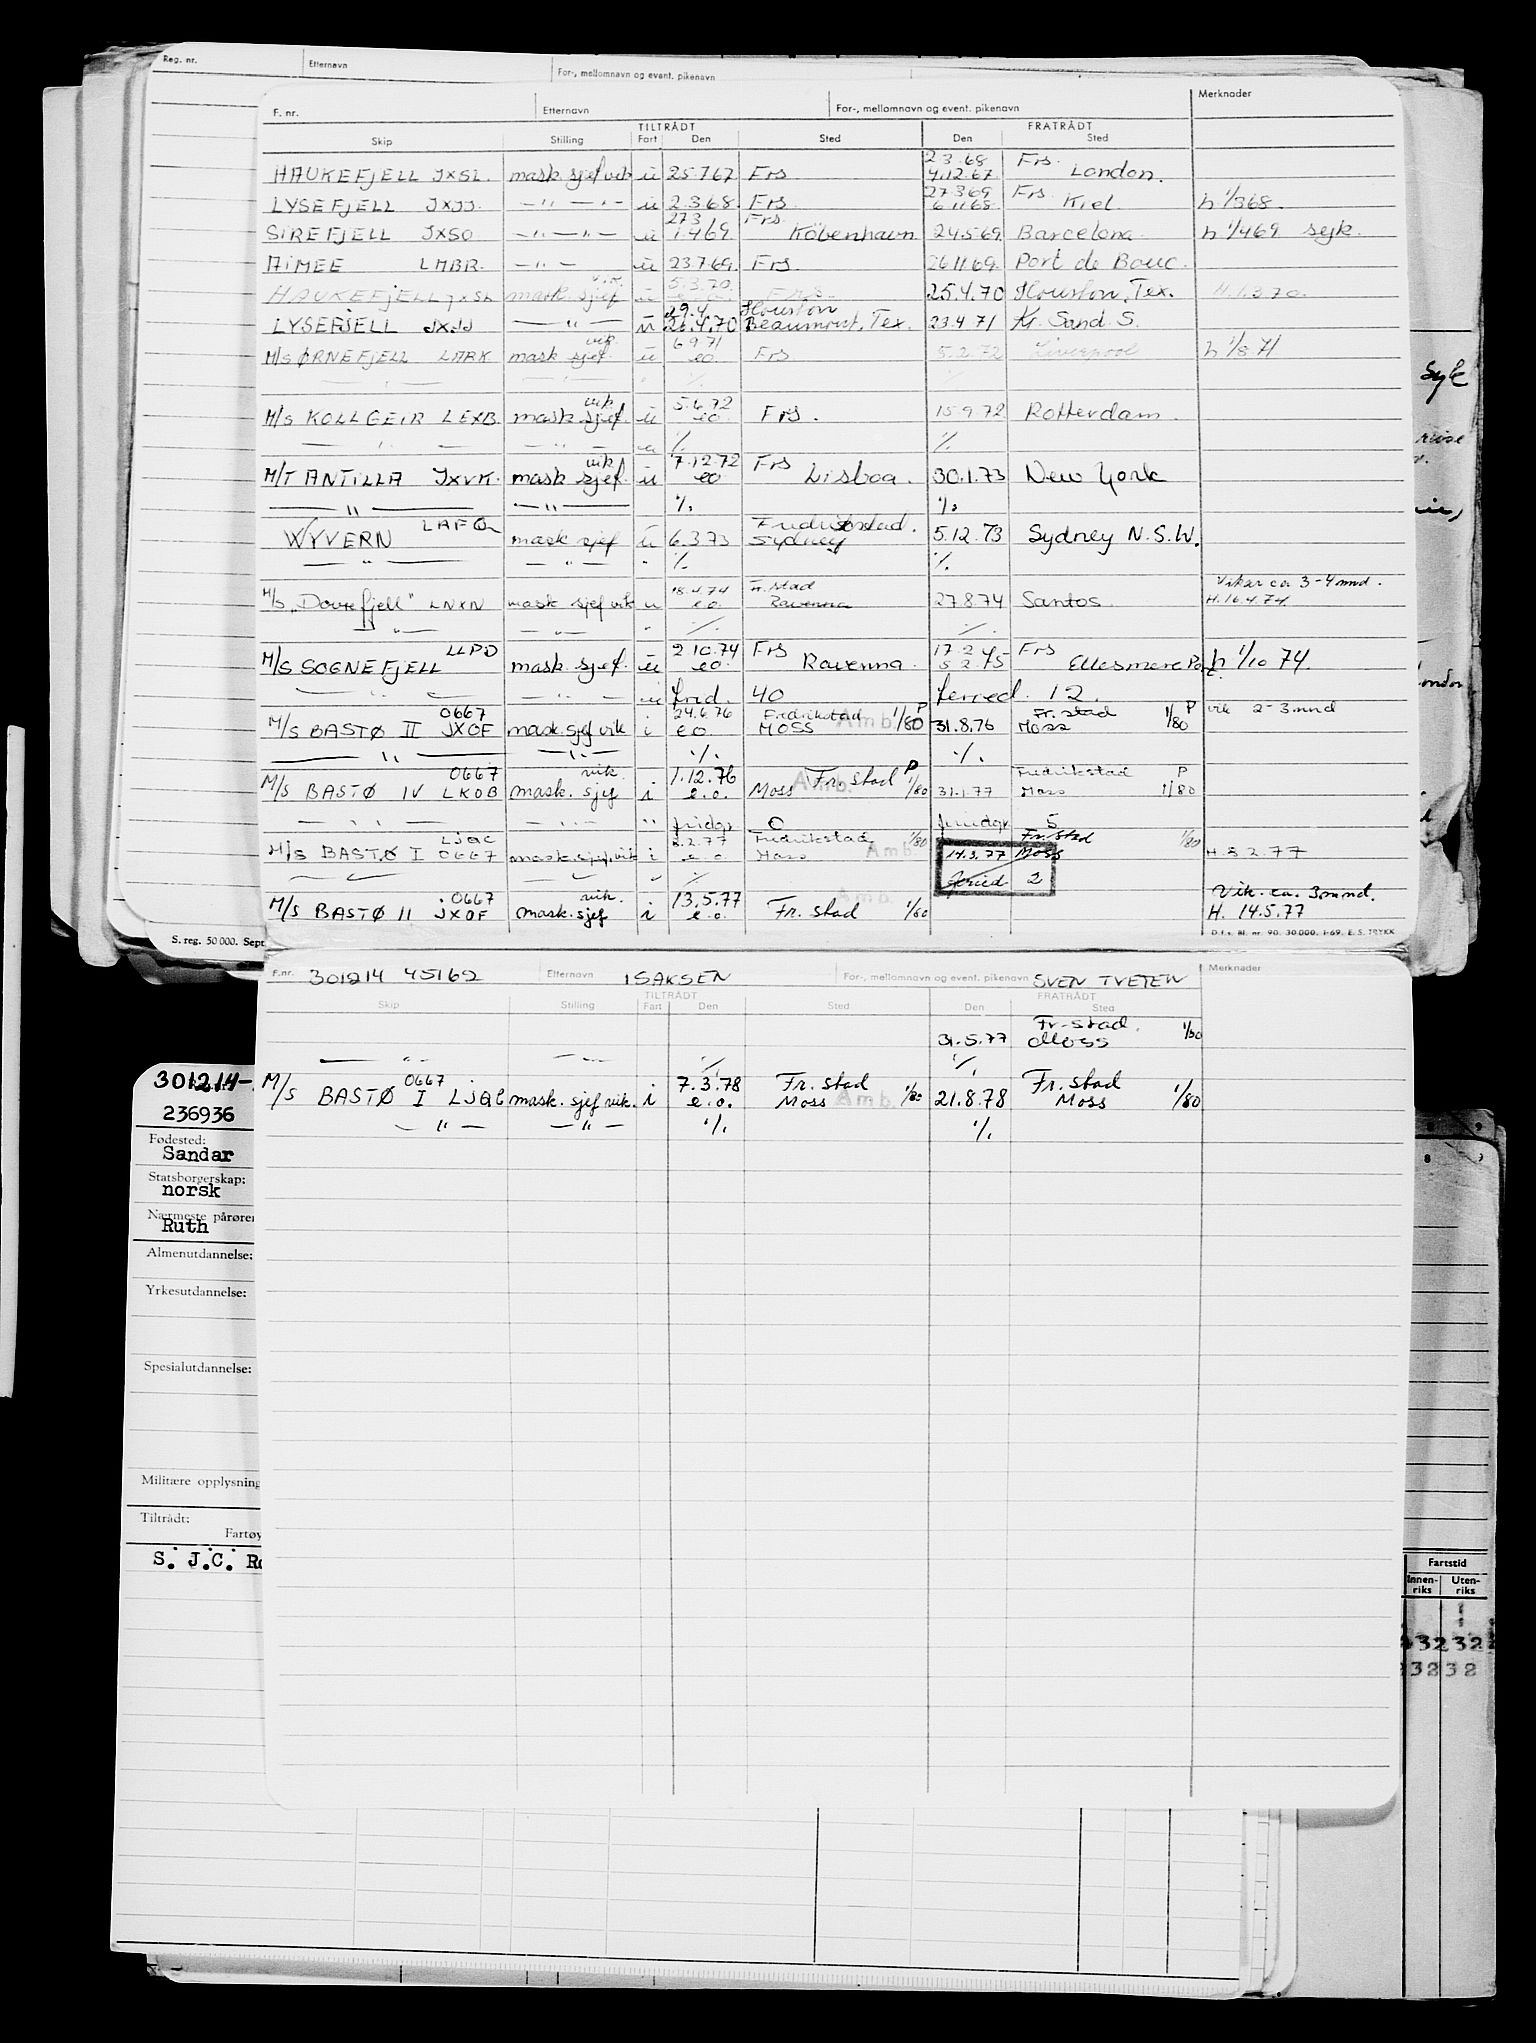 Reg. nr. Etternavn For-, mellomnavn og event. pikenavn
F. nr. Etternavn For-, mellomnavn og event. pikenavn Merknader
TILTRÅDT FRATRÅDT
Skip Stilling Fart Den Sted Den Sted
2.3.68 Frs.
HAUKEFJELL JXSL. mask. sjef vik ü 25.7.67 Frs 4.12.67 London.
27.3.69 Frs.
LYSEFJELL JXJJ. — " — " — ü 2.3.68 Frs. 6.11.68 Kiel h 1/3 68.
27.3 Frs.
SIREFJELL JXSO — " — " — ü 1.4.69 Köbenhavn 24.5.69 Barcelona h 1/4 69 syk.
AIMEE LMBR. — " — ü 23.7.69 Frs. 26.11.69. Port de Bouc.
vik. 5.3.70
HAUKEFJELL JXSL mask. sjef ü Frs. 25.4.70 Houston, Tex. H.1.3.70.
29.4. Houston
LYSEFJELL JXJJ — " — ü 26.4.70 Beaumont, Tex. 23.4.71 Kr. Sand. S.
vik. 6.9.71
M/S ØRNEFJELL LMRK mask sjef. ü eo. Frs 5.2.72 Liverpool h 1/8. 71
— " — — " — " ./. ./.
vik 5.6.72
M/S KOLLGEIR LEXB. mask sjef. ü eo. Frs. 15.9.72 Rotterdam.
— " — — " — ü ./. ./.
vik 7.12.72 Frs
M/T ANTILLA JXVK. mask sjef. ü eo Lisboa. 30.1.73 New York
— " — — " — ./. ./.
LAFQ Fredrikstad.
WYVERN mask sjef ü 6.3.73 Sydney 5.12.73 Sydney N.S.W.
— " — — " — " ./. ./.
18.4.74 Fr. stad Vikar ca 3-4 mnd.
M/S „Dovrefjell" LNXN mask sjef vik u e.o. Ravenna 27.8.74 Santos. H.16.4.74
— " — — " — " ./. ./.
LLPD 2.10.74 Frs 17.2.75 Frs
M/S SOGNEFJELL mask. sjef. ü eo. Ravenna. 5.2.75 Ellesmere Port h 1/10 74.
— " — — " — ü frid. 40 feried. 12.
0667 24.6.76 Fredrikstad P Fr. stad P vik 2-3 mnd
M/S BASTØ II JXOF mask. sjef vik i e.o. MOSS Amb. 1/80 31.8.76 Moss 1/80
— " — — " — ./. ./.
0667 vik. 1.12.76 Fr. stad P Fredrikstad P
M/S BASTØ IV LKOB mask. sjef i e.o. Moss Amb. 1/80 31.1.77 Moss 1/80
— " — — " — " fridgr 0 fridgr 5
LJQC 2.77 Fredrikstad 1/80 Fr. stad 1/80
M/S BASTØ I 0667 mask. sjef. vik i e.o Moss Amb. 14.3.77 Moss H. 5.2.77
— " — — " — " ./. feried 2
0667 vik. 13.5.77 Amb. Vik. ca. 3 mnd.
M/S BASTØ II JXOF mask. sjef i e.o. Fr. stad 1/80 H. 14.5.77
S. reg. 50 000. Sept D.f.s. Bl. nr. 90. 30.000. 1-69. E.S. TRYKK
F.nr. 301214 45162 Etternavn ISAKSEN For-, mellomnavn og event. pikenavn SVEN TVETEN Merknader
TILTRÅDT FRATRÅDT
Skip Stilling Fart Den Sted Den Sted
Fr. stad.
31.5.77 Moss 1/80
— " — — " — ./. ./.
0667 7.3.78 Fr. stad Fr. stad
M/S BASTØ I LJQC mask. sjef vik. i e.o. Moss Amb. 1/80 21.8.78 Moss 1/80
— " — — " — ./. ./.
301214-
236936
Fødested:
Sandar
Statsborgerskap:
norsk
Nærmeste pårøren
Ruth
Almenutdannelse:
Yrkesutdannelse:
Spesialutdannelse:
Militære opplysning
Tiltrådt:
Fartøy
S. J.C. Ro
Syk
reise
Fartstid
Innen-riks Uten-riks
3232
3232